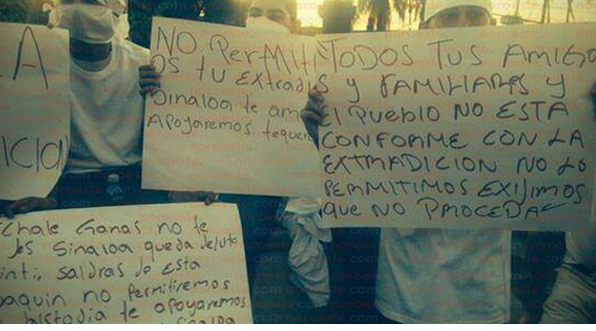 A
ICIA
NO PerMiti
OS tu Extradi
Sinaloa te am
Apoyaremos. tequere
TODOS TUS AMIGO
S y FAMILIARES y
El Pueblo NO ESTA
CONFORME CON LA
EXTRADICION NO LO
PERMITIMOS EXIJIMOS
que NO PROCEDA
Echale Ganas no te
Sinaloa queda
saldras de Esta
oaquin no permitiremos
te apoyaremos